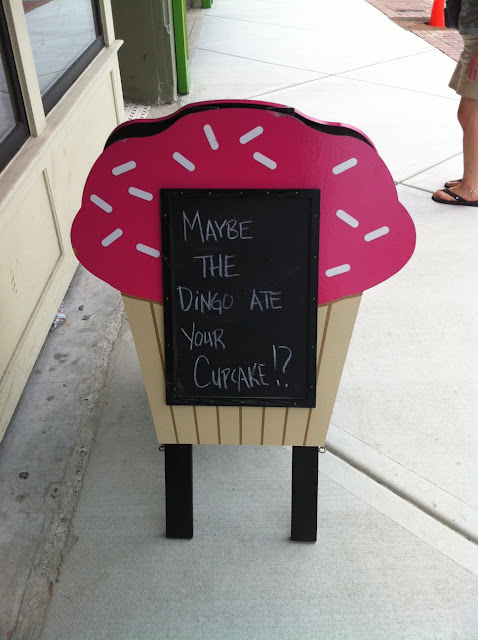 Maybe
the
Dingo ate
your
Cupcake!?